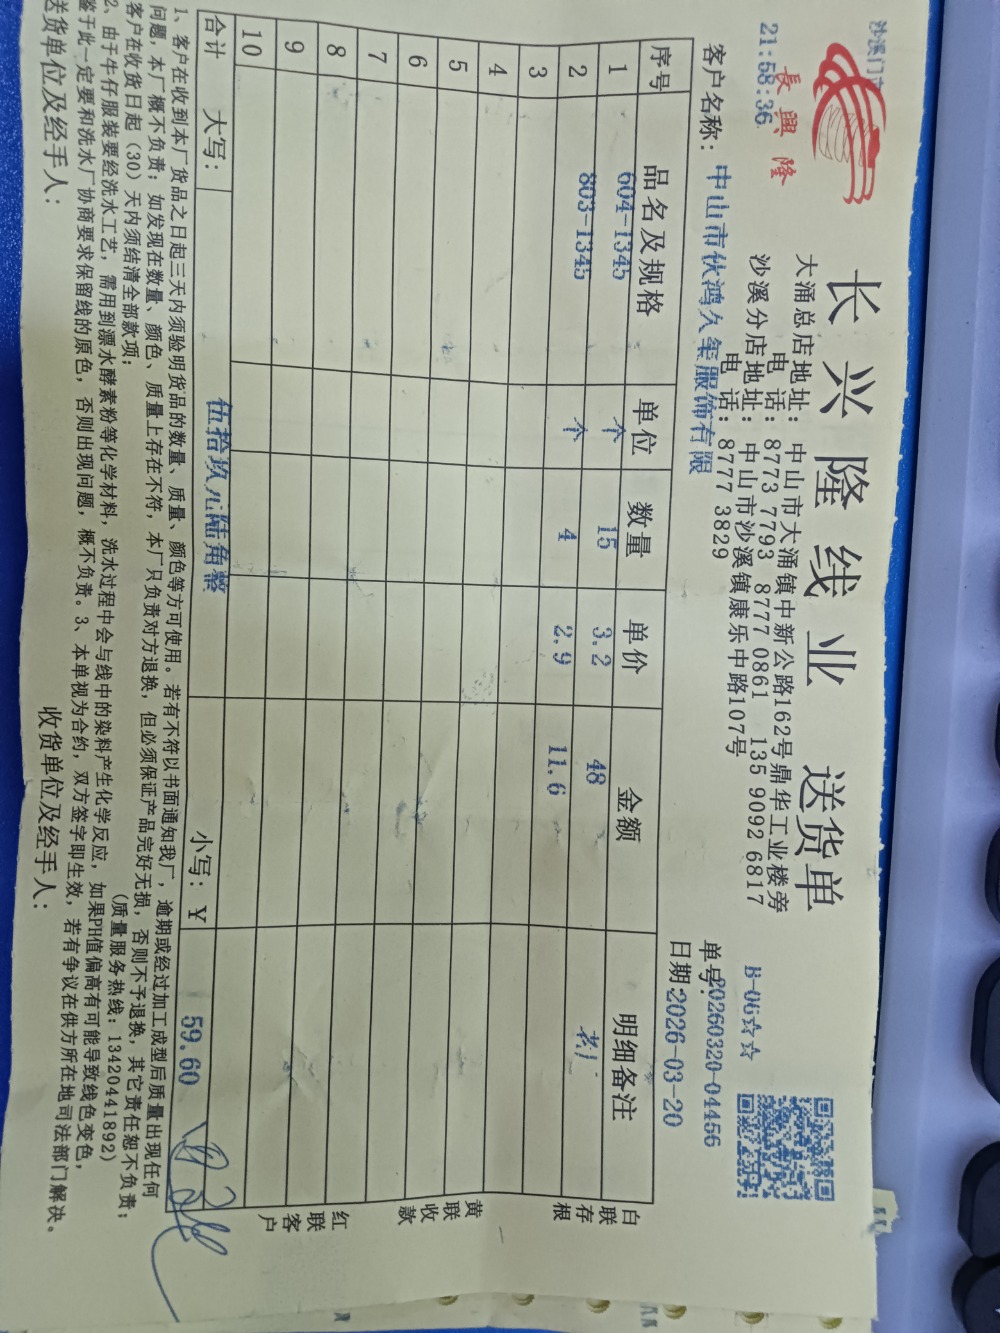 沙溪门市
21:58:36
長興隆
长兴隆线业 送货单
大涌总店地址：中山市大涌镇中新公路162号鼎华工业楼旁
电 话：8773 7793 8777 0861 135 9092 6817
沙溪分店地址：中山市沙溪镇康乐中路107号
电 话：8777 3829
B-06☆☆
单号：20260320-04456
客户名称：中山市伙鸿久玺服饰有限
日期：2026-03-20
序号 品名及规格 单位 数量 单价 金额 明细备注
1 604-1345 个 15 3.2 48
2 803-1345 个 4 2.9 11.6
3
4
5
6
7
8
9
10
合计 大写： 伍拾玖元陆角整 小写：￥ 59.60
白联存根
黄联收款
红联客户
1、客户在收到本厂货品之日起三天内须验明货品的数量、质量、颜色等方可使用。若有不符以书面通知我厂，逾期或经过加工成型后质量出现任何
问题，本厂概不负责；如发现在数量、颜色、质量上存在不符，本厂只负责对方退换，但必须保证产品完好无损，否则不予退换，其它责任恕不负责；
客户在收货日起（30）天内须结清全部款项； （质量服务热线：13420441892）
2、由于牛仔服装要经洗水工艺，需用到漂水酵素粉等化学材料，洗水过程中会与线中的染料产生化学反应，如果PH值偏高有可能导致线色变色，
鉴于此一定要和洗水厂协商要求保留线的原色，否则出现问题，概不负责。3、本单视为合约，双方签字即生效，若有争议在供方所在地司法部门解决。
送货单位及经手人： 收货单位及经手人：